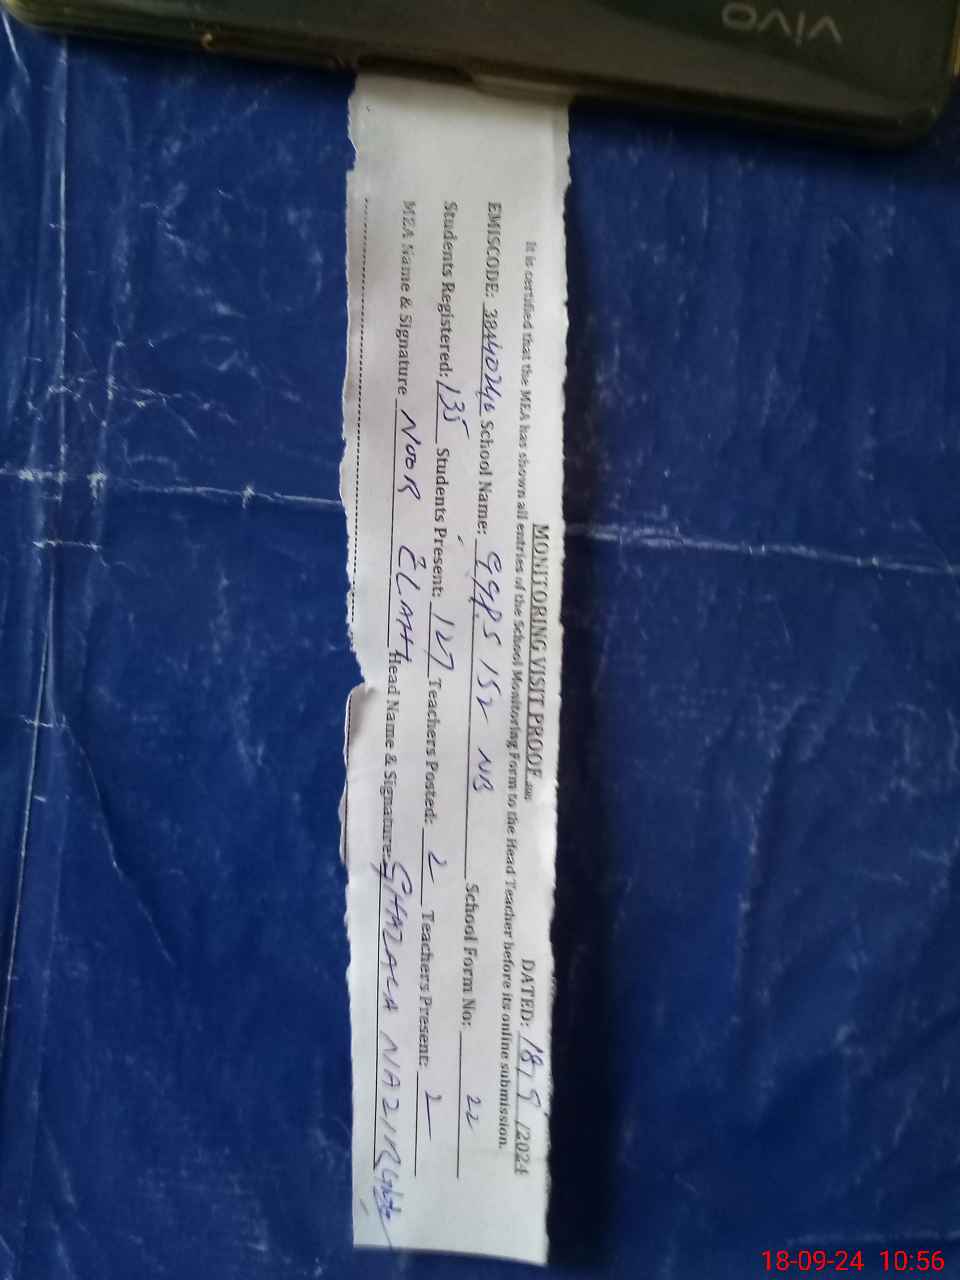 vivo
MONITORING VISIT PROOF DATED: 18/9/2024
It is certified that the MEA has shown all entries of the School Monitoring Form to the Head Teacher before its online submission.
EMISCODE: 38440246 School Name: GGPS 152 NB School Form No: 22
Students Registered: 135 Students Present: 127 Teachers Posted: 2 Teachers Present: 2
MEA Name & Signature NOOR ELAHI Head Name & Signature: GHAZALA NAZIR
18-09-24 10:56